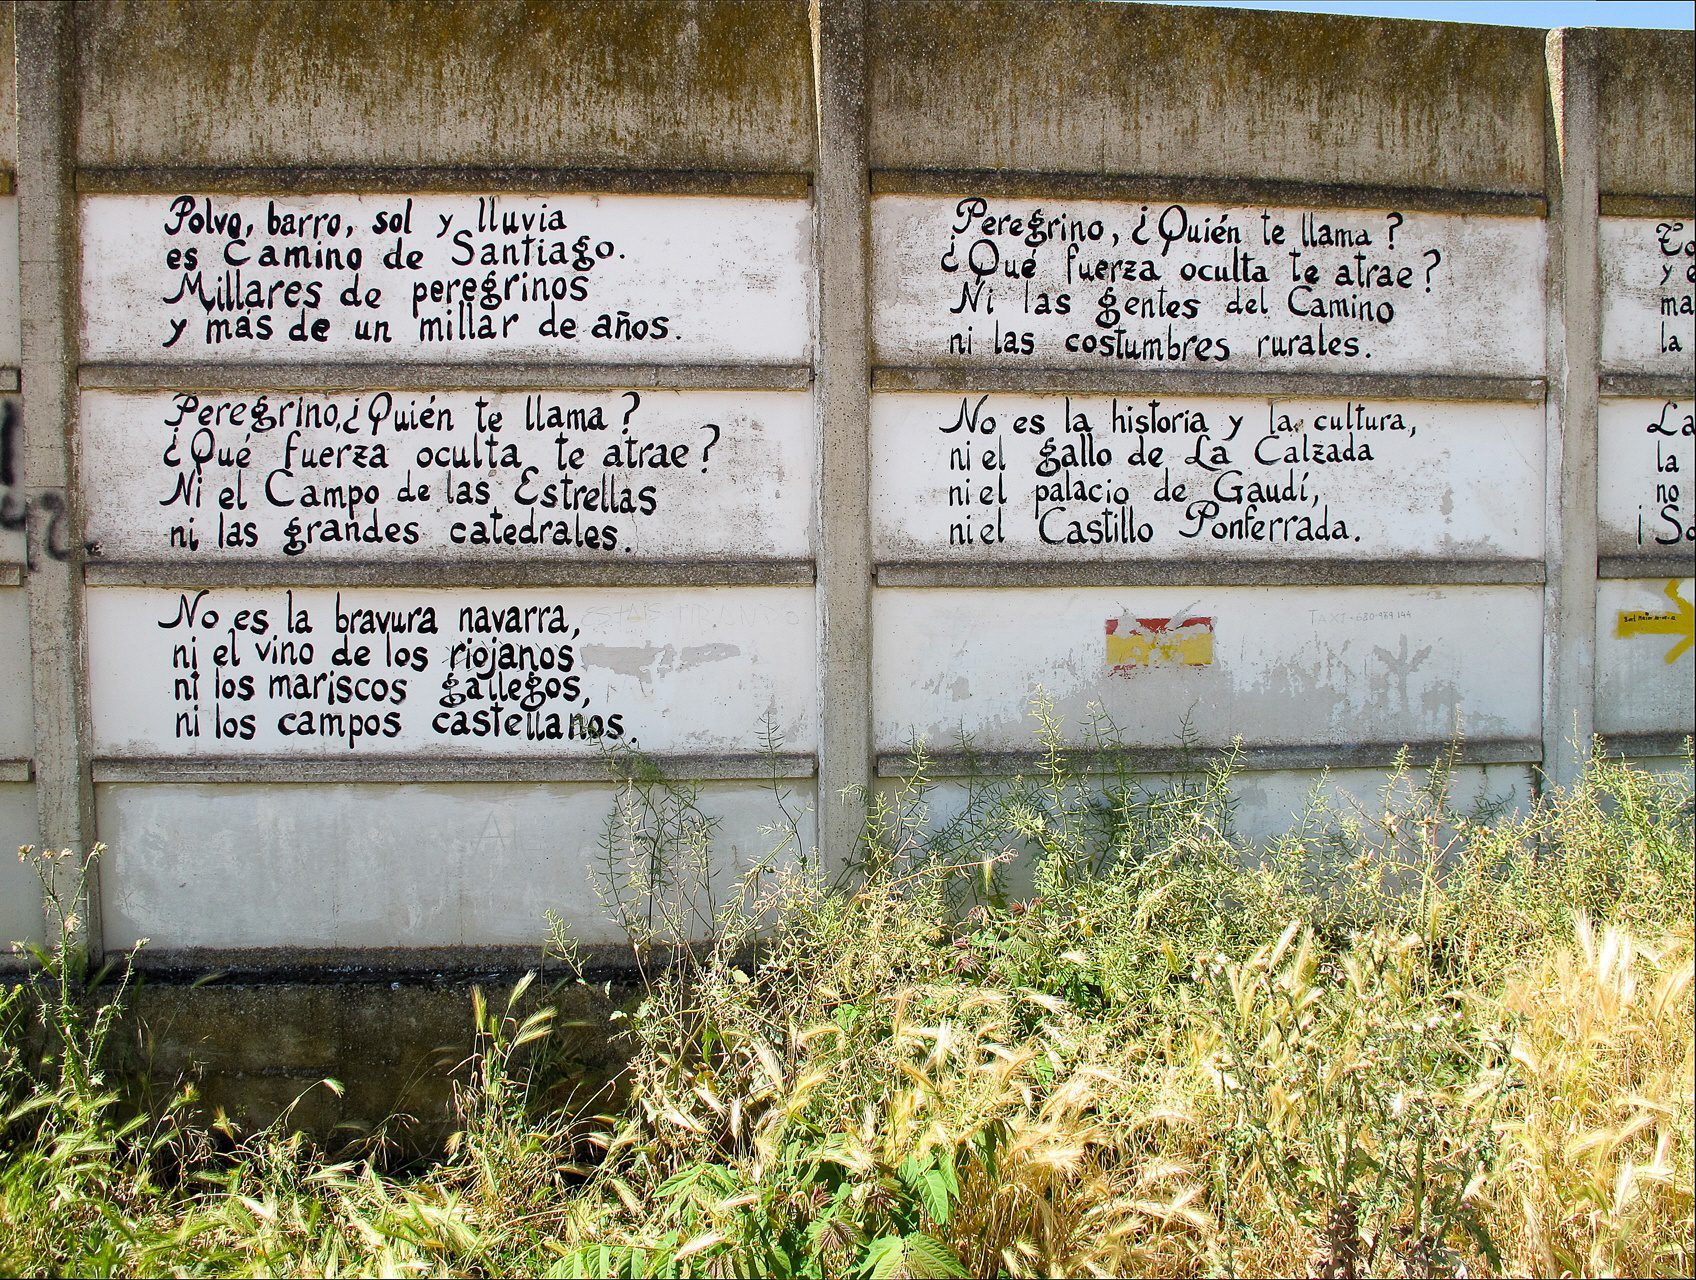 Polvo, barro, sol y lluvia
es Camino de Santiago.
Millares de peregrinos
y más de un millar de años.
Peregrino,¿Quién te llama?
¿Qué fuerza oculta te atrae?
Ni el Campo de las Estrellas
ni las grandes catedrales.
No es la bravura navarra,
ni el vino de los riojanos
ni los mariscos gallegos,
ni los campos castellanos.
Peregrino, ¿Quién te llama?
¿Qué fuerza oculta te atrae?
Ni las gentes del Camino
ni las costumbres rurales.
No es la historia y la cultura,
ni el gallo de La Calzada
ni el palacio de Gaudí,
ni el Castillo Ponferrada.
TAXI
y
la
La
la
no